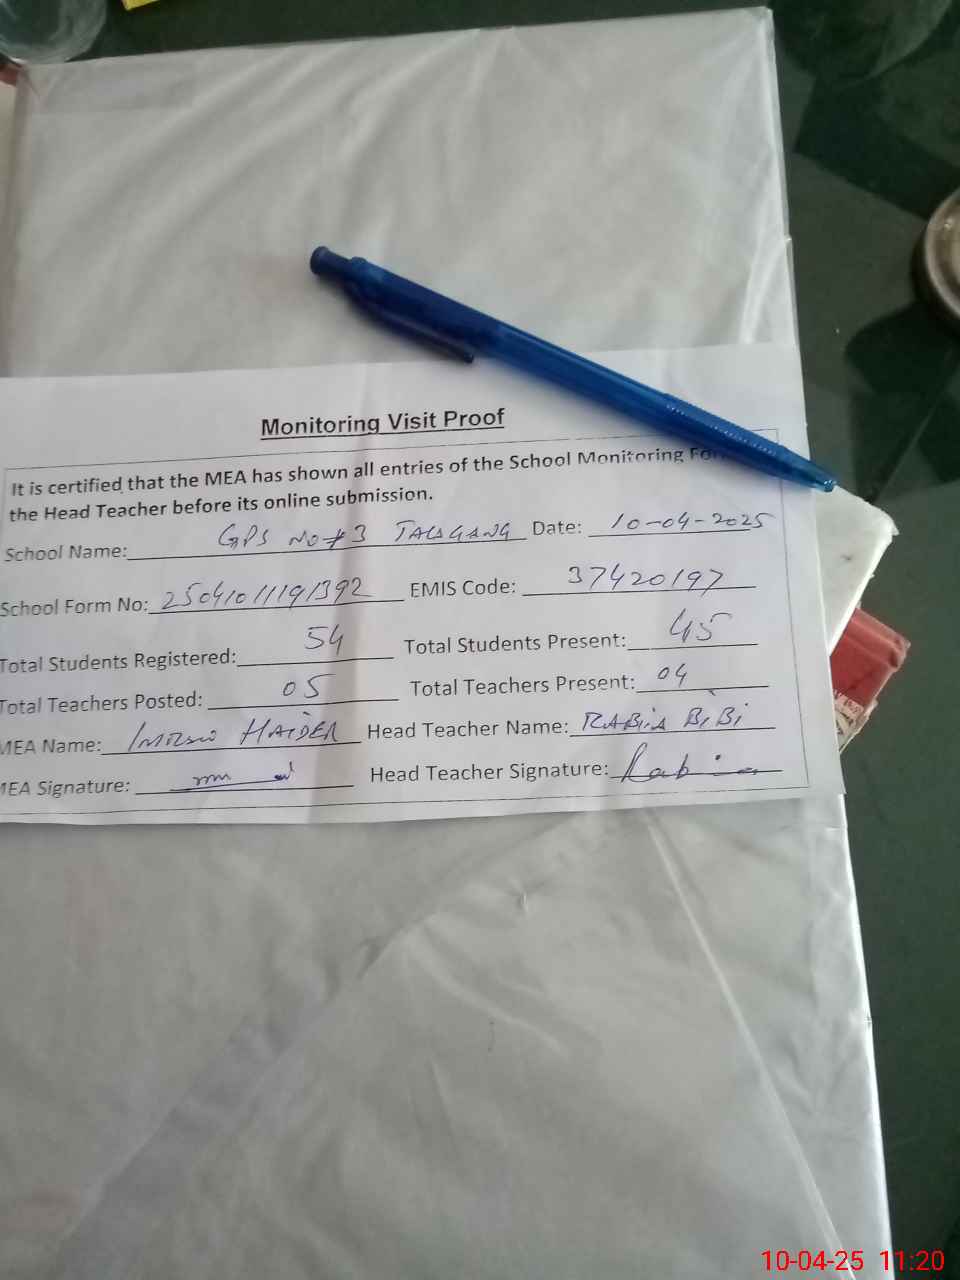 Monitoring Visit Proof
It is certified that the MEA has shown all entries of the School Monitoring
the Head Teacher before its online submission.
School Name: GPS No # 3 TALAGANG Date: 10-04-2025
School Form No: 25041011191392 EMIS Code: 37420197
Total Students Registered: 54 Total Students Present: 45
Total Teachers Posted: 05 Total Teachers Present: 04
MEA Name: HAIDER Head Teacher Name: RABiA BiBi
MEA Signature: Head Teacher Signature: Rabia
10-04-25 11:20